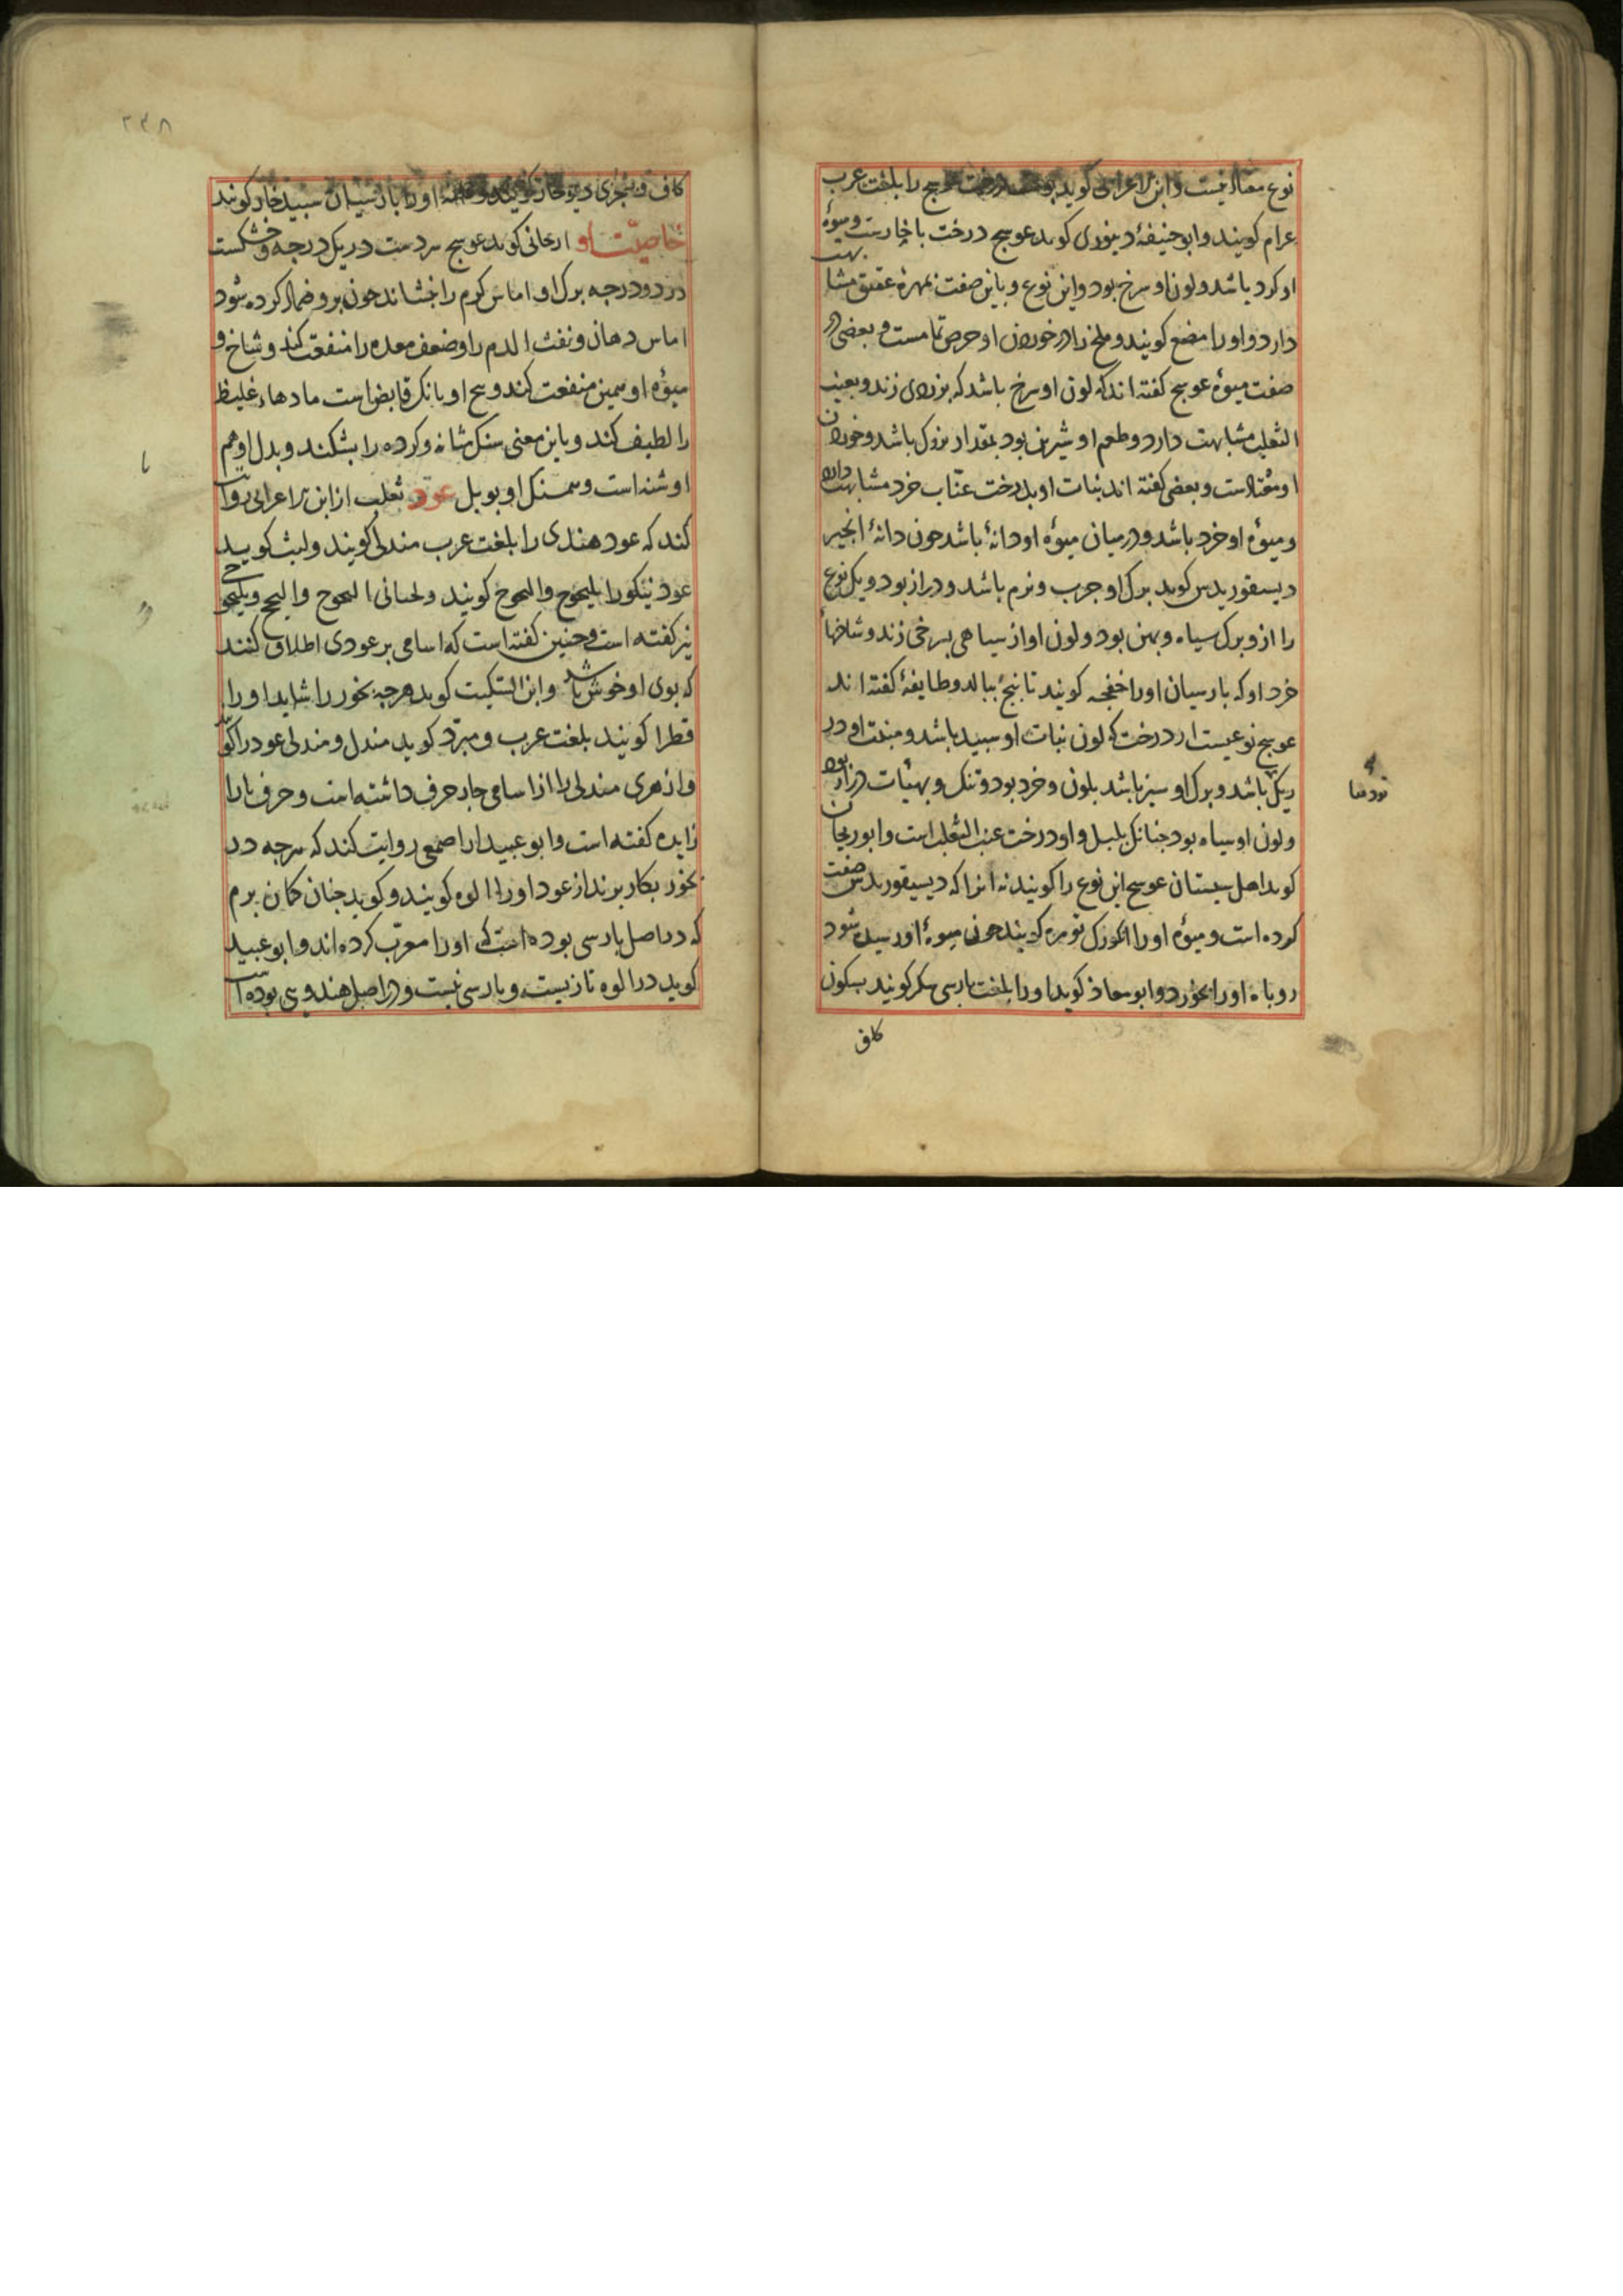 نوع مغالیست و ابن الاعرابی کوید درخت عوسج را بلغت عرب
عرام کویند و ابو حنیفهٔ دینوری کوید عوسج درخت با خارست و میوهٔ
او کرد باشد و لون او سرخ بود و این نوع و باین صفت بمهرهٔ عقیق مشابهت
دارد و او را مصع کویند و ملخ را در خوردن او حرص تمامست و بعضی در
صفت میوهٔ عوسج کفته اند که لون او سرخ باشد که بزردی زند و بعنب
الثعلب مشابهت دارد و طعم او شیرین بود بمقدار بزرک باشد و خوردن
او معتادست و بعضی کفته اند نبات او بدرخت عنّاب خرد مشابهت دارد
و میوهٔ او خرد باشد و در میان میوهٔ او دانهٔ باشد چون دانهٔ انجیر
دیسقوریدس کوید برک او چرب و نرم باشد و دراز بود و یک نوع
را ازو برک سیاه و پهن بود و لون او از سیاهی بسرخی زند و شاخهاء
خرد او که پارسیان او را خفجه کویند تا پنج ببالد و طایفهٔ کفته اند
عوسج نوعیست از درخت که لون نبات او سپید باشد و منبت او در
ریک باشد و برک او سبز باشد بلون و خرد بود و تنک و بهیئات دراز بود
و لون او سیاه بود چنانک پلپل و او درخت عنب الثعلب است و ابوریحان
کوید اهل سیستان عوسج این نوع را کویند نه انرا که دیسیقوریدس صفت
کرده است و میوهٔ او را انکورک توره کویند چون میوهٔ او رسیده شود
روباه او را بخورد و ابو معاذ کوید او را بلغت پارسی سکر کویند بسکون
کاف
تودها
۲۳۸
کاف و سجزی دیوخار کویند او را پارسیان سپید خار کویند
خاصیّت او ارجانی کوید عوسج سردست در یک درجه و خشکست
در دو درجه برک او اماس کرم را بنشاند چون برو ضماد کرده شود
اماس دهان و نفث الدم را و ضعف معده را منفعت کند و شاخ و
میوهٔ او همین منفعت کند و بیخ او بانک قابض است مادهاء غلیظ
را لطیف کند و باین معنی سنک مثانه و کرده را بشکند و بدل او هم
او شنه است و همسنک او بوبل عود ثعلب از ابن الاعرابی روایت
کند که عود هندی را بلغت عرب مندلی کویند و لیث کوید
عود نیکو را یلنجوج و النجوج کویند و لحیانی النجوج و النجج و یلنجوجی
نیز کفته است و چنین کفته است که اسامی بر عودی اطلاق کنند
که بوی او خوش باشد و ابن السّکیت کوید هرچه بخور را شاید او را
قطر کویند بلغت عرب و مبرّد کوید مندل و مندلی عود را کویند
و ازهری مندلی را از اسامی چار حرف داشته است و حرف یا را
زایده کفته است و ابو عبید از اصمعی روایت کند که هرچه در
بخور بکار برند از عود او را الوه کویند و کوید چنان کمان برم
که در اصل پارسی بوده است که او را معرّب کرده اند و ابو عبید
کوید در الوه تازیست و پارسی نیست و در اصل هندوی بوده است